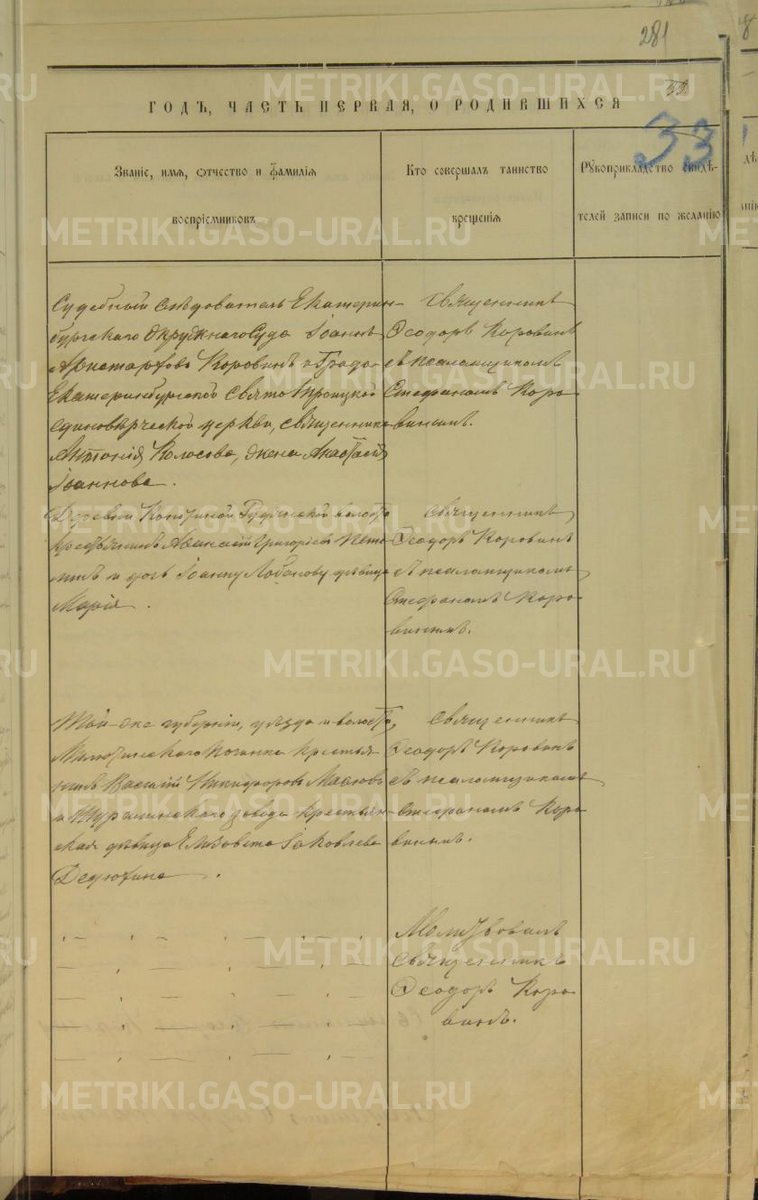 281
33
ГОДЪ, ЧАСТЬ ПЕРВАЯ, О РОДИВШИХСЯ
33
Званіе, имя, отчество и фамилія
воспріемниковъ
Кто совершалъ таинство
крещенія
Рукоприкладство свидѣ-
телей записи по желанію
Судебный Слѣдователь Екатерин-
бургскаго Окружнаго Суда Іоаннъ
Аристарховъ Коровинъ и Градо-
Екатеринбургской Свято Троицкой
единовѣрческой церкви, священника
Антонія Колосова, жена Анастасія
Іоаннова.
Священникъ
Ѳеодоръ Коровинъ
съ псаломщикомъ
Стефаномъ Коро-
винымъ.
Деревни волости
крестьянинъ Аѳанасій Григорьевъ
и дочь Іоанна Лобанова дѣвица
Марія.
Священникъ
Ѳеодоръ Коровинъ
съ псаломщикомъ
Стефаномъ Коро-
винымъ.
Той-же губерніи, уѣзда и волости,
починка крестья-
нинъ Василій Никифоровъ
и завода крестьян-
ская дѣвица Елизавета Іаковлева
Дедюхина.
Священникъ
Ѳеодоръ Коровинъ
съ псаломщикомъ
Стефаномъ Коро-
винымъ.
Молитвовалъ
Священникъ
Ѳеодоръ Коро-
винъ.
METRIKI.GASO-URAL.RU